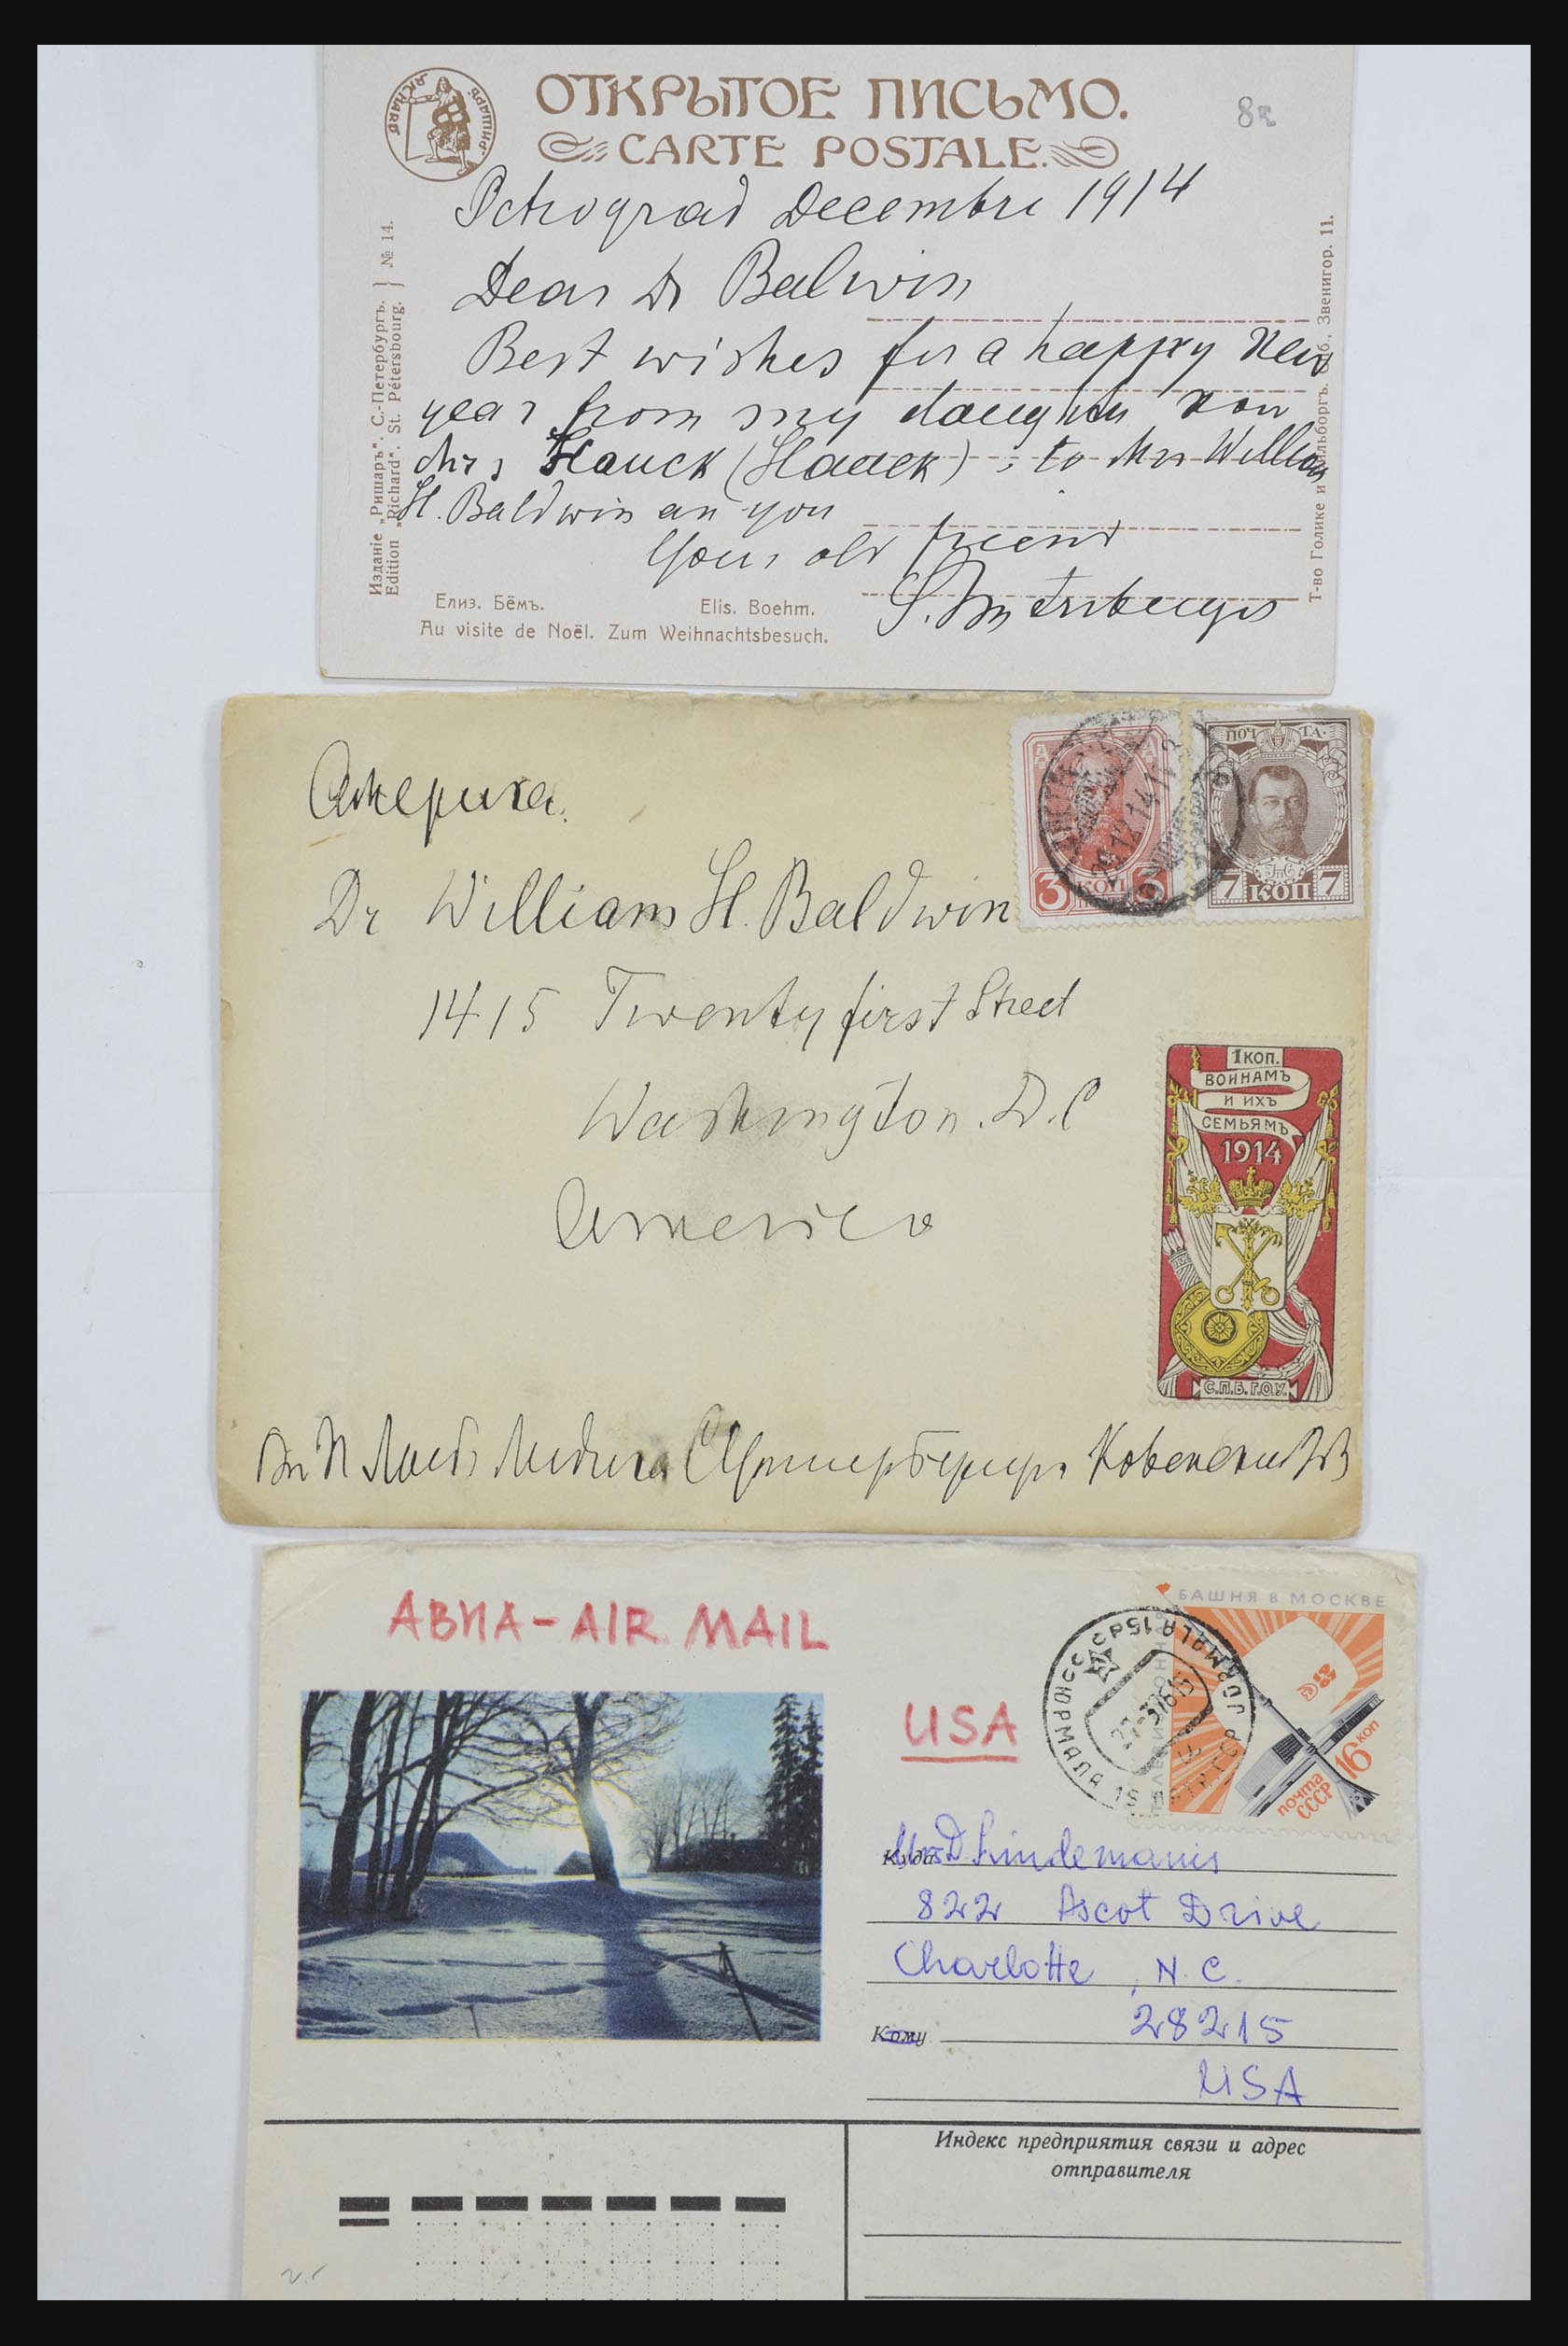 RICHARD
РИШАРЪ
ОТКРЫТОЕ ПИСЬМО.
CARTE POSTALE.
8к
Petrograd Decembre 1914
Dear Dr Balwin
Best wishes for a happy New
year from my daughter now
Mrs Hauck (Hauck) to Mrs William
H. Baldwin an you
Your old friend
Изданіе „Ришаръ“. С.-Петербургъ.
Edition „Richard“. St. Pétersbourg.
№ 14.
Т-во Голике и Вильборгъ. Спб., Звенигор. 11.
Елиз. Бёмъ. Elis. Boehm.
Au visite de Noël. Zum Weihnachtsbesuch.
Америка.
Dr William H. Baldwin
1415 Twenty first Street
Washington. D.C
America
3 КОП 3
ПОЧТА
7 КОП 7
1 КОП.
ВОИНАМЪ
И ИХЪ
СЕМЬЯМЪ
1914
С.П.Б.Г.О.У.
АВИА-AIR MAIL
USA
БАШНЯ В МОСКВЕ
16 КОП
ПОЧТА
СССР
ЮРМАЛА 15
JŪRMALA 15
Куда Mrs D Lindemanis
822 Ascot Drive
Charlotte, N.C.
Кому 28215
USA
Индекс предприятия связи и адрес
отправителя